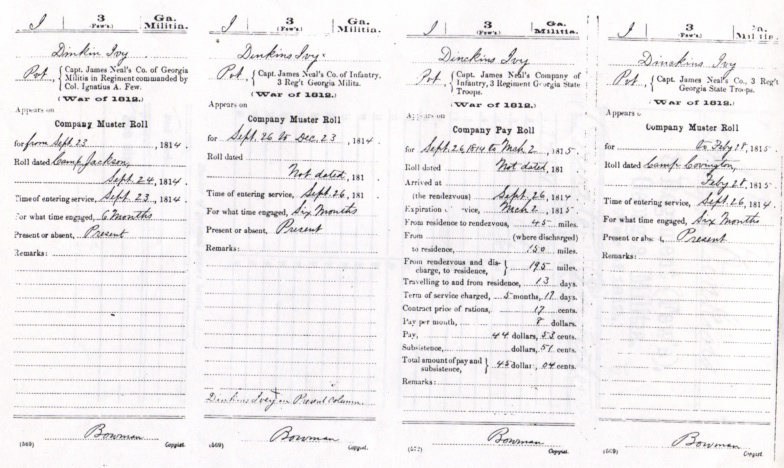 I | 3 (Few's.) | Ga. Militia.
Dinkin Ivy
Pvt., { Capt. James Neal's Co. of Georgia
Militia in Regiment commanded by
Col. Ignatius A. Few.
(War of 1812.)
Appears on
Company Muster Roll
for from Sept. 23, 1814.
Roll dated Camp Jackson,
Sept. 24, 1814.
Time of entering service, Sept. 23, 1814.
For what time engaged, 6 Months
Present or absent, Present
Remarks:
Bowman
(569) Copyist.
I | 3 (Few's.) | Ga. Militia.
Dinkins Ivy
Pvt., { Capt. James Neal's Co. of Infantry,
3 Reg't Georgia Militia.
(War of 1812.)
Appears on
Company Muster Roll
for Sept. 26 to Dec. 23, 1814.
Roll dated
Not dated, 181
Time of entering service, Sept. 26, 181
For what time engaged, Six Months
Present or absent, Present
Remarks:
Dinkins Ivey in Column
Bowman
(569) Copyist.
I | 3 (Few's.) | Ga. Militia.
Dinckins Ivy
Pvt., { Capt. James Neal's Company of
Infantry, 3 Regiment Georgia State
Troops.
(War of 1812.)
Appears on
Company Pay Roll
for Sept. 26, 1814 to Mch 2, 1815.
Roll dated Not dated, 181
Arrived at
(the rendezvous) Sept. 26, 1814
Expiration vice, Mch 2, 1815
From residence to rendezvous, 45 miles.
From (where discharged)
to residence, 150 miles.
From rendezvous and dis-
charge, to residence, } 195 miles.
Travelling to and from residence, 13 days.
Term of service charged, 5 months, 17 days.
Contract price of rations, 17 cents.
Pay per month, 8 dollars.
Pay, 44 dollars, 53 cents.
Subsistence, dollars, 51 cents.
Total amount of pay and
subsistence, } 45 dollars, 04 cents.
Remarks:
Bowman
(572) Copyist.
I | 3 (Few's.) | Ga. Militia.
Dinckins Ivy
Pvt., { Capt. James Neal's Co., 3 Reg't
Georgia State Troops.
(War of 1812.)
Appears o
Company Muster Roll
for to Feby 28, 1815.
Roll dated Camp Covington,
Feby 28, 1815.
Time of entering service, Sept. 26, 1814.
For what time engaged, Six Months
Present or abs t, Present
Remarks:
Bowman
(569) Copyist.